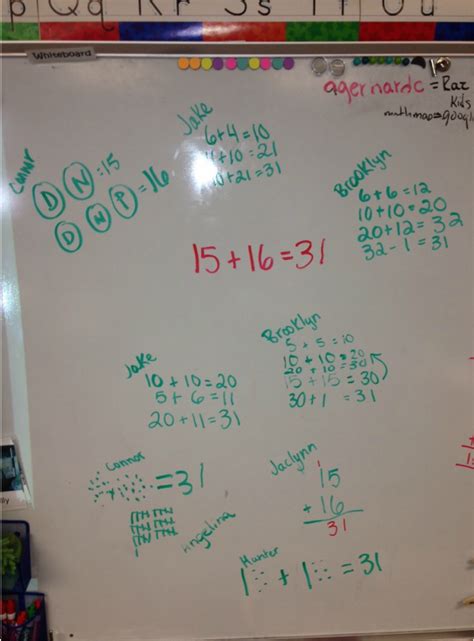 Qq Rr Ss Tt Uu
Whiteboard
agernardc = Raz
Kids
Jake
6+4=10
11+10=21
10+21=31
Connor
D N =15
D N P =16
Brooklyn
6+6=12
10+10=20
20+12=32
32-1=31
15+16=31
Brooklyn
5+5=10
10+10=20
20+10=30
15+15=30
30+1=31
Jake
10+10=20
5+6=11
20+11=31
Connor
=31
Angelina
Jaclynn
1
15
+16
31
Hunter
1 + 1 = 31